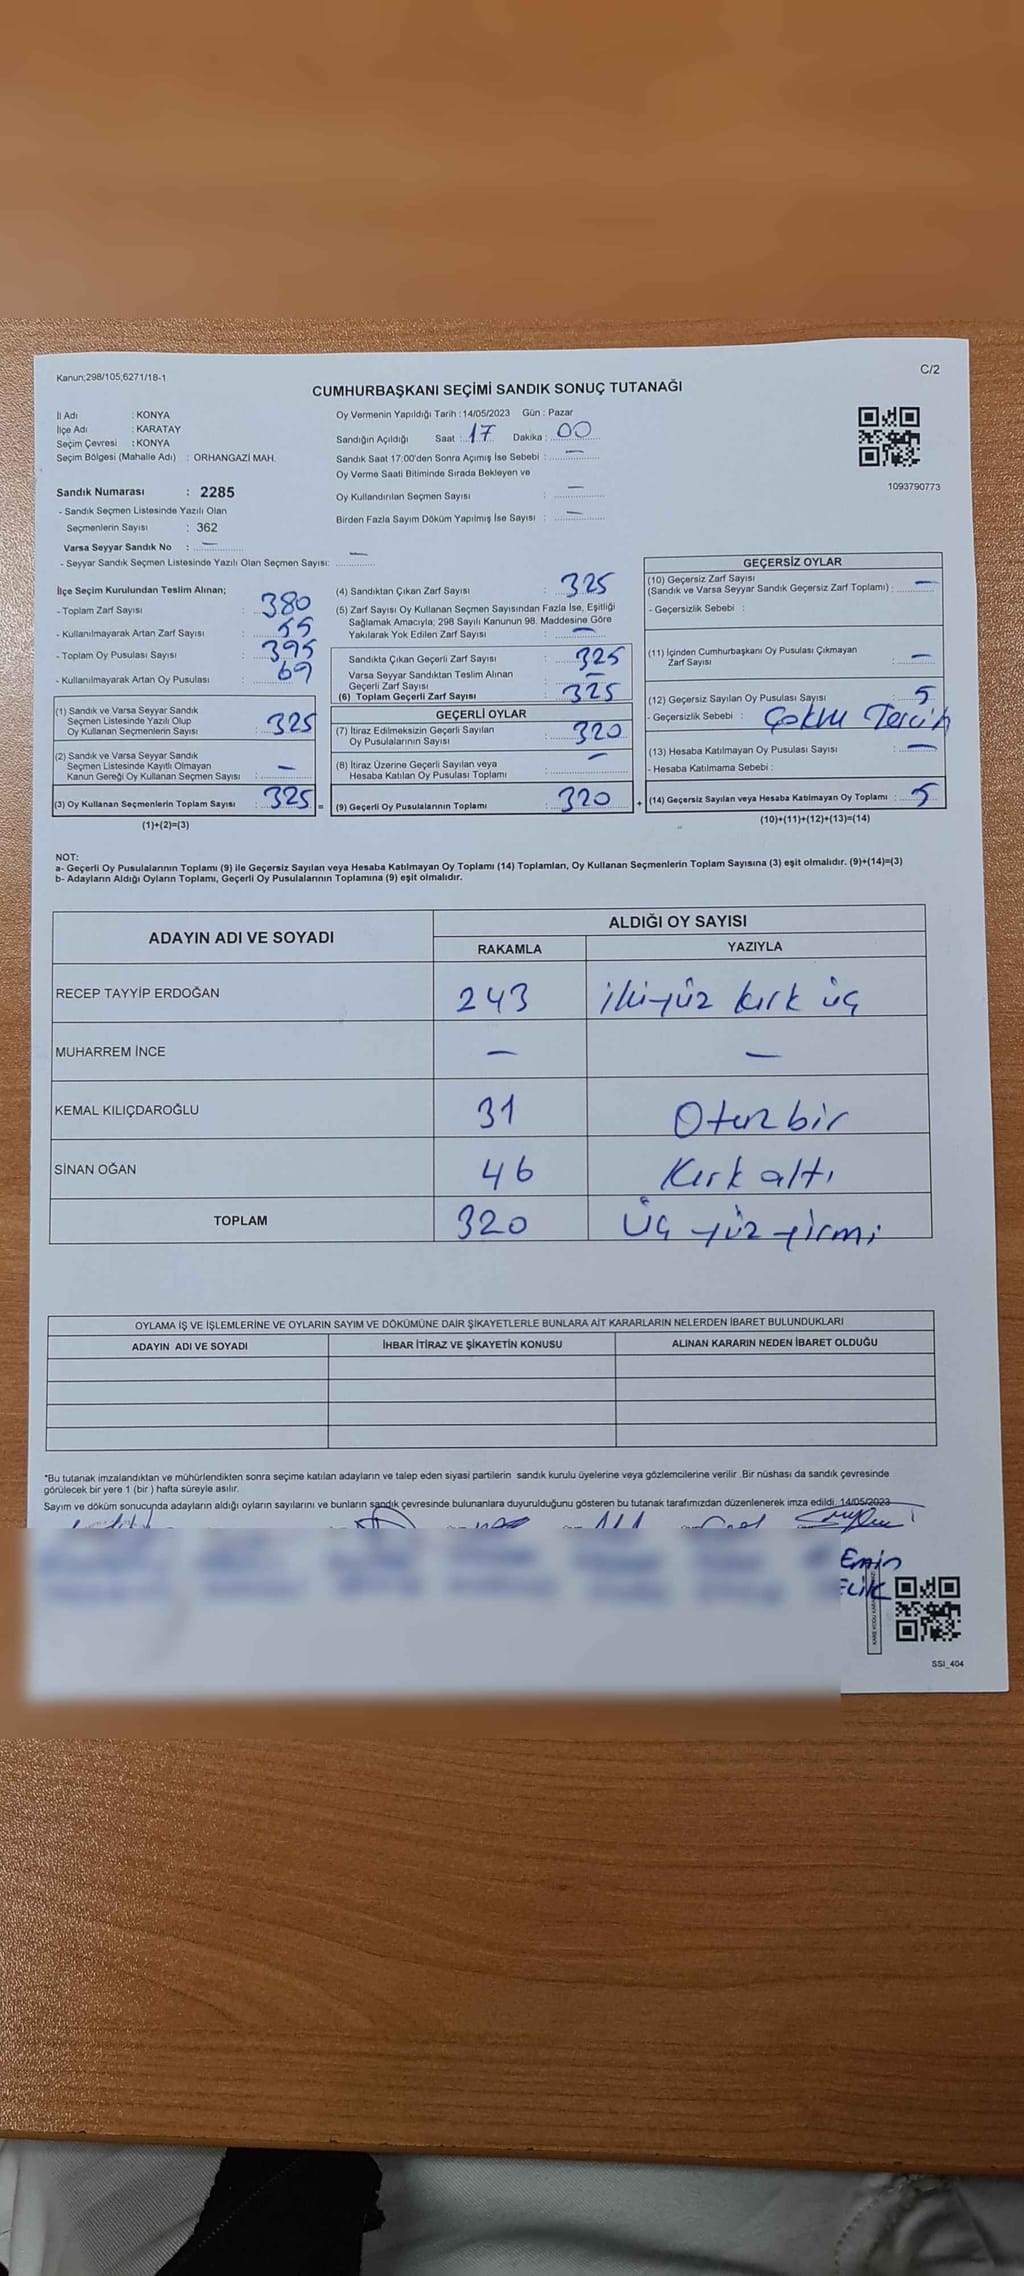 Kanun;298/105;6271/18-1
C/2
CUMHURBAŞKANI SEÇİMİ SANDIK SONUÇ TUTANAĞI
İl Adı : KONYA
İlçe Adı : KARATAY
Seçim Çevresi : KONYA
Seçim Bölgesi (Mahalle Adı) : ORHANGAZİ MAH.
Sandık Numarası : 2285
- Sandık Seçmen Listesinde Yazılı Olan
Seçmenlerin Sayısı : 362
Varsa Seyyar Sandık No : —
- Seyyar Sandık Seçmen Listesinde Yazılı Olan Seçmen Sayısı: —
Oy Vermenin Yapıldığı Tarih : 14/05/2023 Gün : Pazar
Sandığın Açıldığı Saat : 17 Dakika : 00
Sandık Saat 17:00'den Sonra Açımış İse Sebebi : —
Oy Verme Saati Bitiminde Sırada Bekleyen ve
Oy Kullandırılan Seçmen Sayısı : —
Birden Fazla Sayım Döküm Yapılmış İse Sayısı : —
1093790773
İlçe Seçim Kurulundan Teslim Alınan;
- Toplam Zarf Sayısı : 380
- Kullanılmayarak Artan Zarf Sayısı : 55
- Toplam Oy Pusulası Sayısı : 395
- Kullanılmayarak Artan Oy Pusulası : 69
(1) Sandık ve Varsa Seyyar Sandık
Seçmen Listesinde Yazılı Olup
Oy Kullanan Seçmenlerin Sayısı : 325
(2) Sandık ve Varsa Seyyar Sandık
Seçmen Listesinde Kayıtlı Olmayan
Kanun Gereği Oy Kullanan Seçmen Sayısı : —
(3) Oy Kullanan Seçmenlerin Toplam Sayısı : 325 =
(1)+(2)=(3)
(4) Sandıktan Çıkan Zarf Sayısı : 325
(5) Zarf Sayısı Oy Kullanan Seçmen Sayısından Fazla İse, Eşitliği
Sağlamak Amacıyla; 298 Sayılı Kanunun 98. Maddesine Göre
Yakılarak Yok Edilen Zarf Sayısı : —
Sandıkta Çıkan Geçerli Zarf Sayısı : 325
Varsa Seyyar Sandıktan Teslim Alınan
Geçerli Zarf Sayısı : —
(6) Toplam Geçerli Zarf Sayısı : 325
GEÇERLİ OYLAR
(7) İtiraz Edilmeksizin Geçerli Sayılan
Oy Pusulalarının Sayısı : 320
(8) İtiraz Üzerine Geçerli Sayılan veya
Hesaba Katılan Oy Pusulası Toplamı : —
(9) Geçerli Oy Pusulalarının Toplamı : 320 +
GEÇERSİZ OYLAR
(10) Geçersiz Zarf Sayısı
(Sandık ve Varsa Seyyar Sandık Geçersiz Zarf Toplamı) : —
- Geçersizlik Sebebi :
(11) İçinden Cumhurbaşkanı Oy Pusulası Çıkmayan
Zarf Sayısı : —
(12) Geçersiz Sayılan Oy Pusulası Sayısı : 5
- Geçersizlik Sebebi : Çoklu Tercih
(13) Hesaba Katılmayan Oy Pusulası Sayısı : —
- Hesaba Katılmama Sebebi :
(14) Geçersiz Sayılan veya Hesaba Katılmayan Oy Toplamı : 5
(10)+(11)+(12)+(13)=(14)
NOT:
a- Geçerli Oy Pusulalarının Toplamı (9) ile Geçersiz Sayılan veya Hesaba Katılmayan Oy Toplamı (14) Toplamları, Oy Kullanan Seçmenlerin Toplam Sayısına (3) eşit olmalıdır. (9)+(14)=(3)
b- Adayların Aldığı Oyların Toplamı, Geçerli Oy Pusulalarının Toplamına (9) eşit olmalıdır.
ADAYIN ADI VE SOYADI
ALDIĞI OY SAYISI
RAKAMLA YAZIYLA
RECEP TAYYİP ERDOĞAN 243 ikiyüz kırk üç
MUHARREM İNCE — —
KEMAL KILIÇDAROĞLU 31 Otuz bir
SİNAN OĞAN 46 Kırk altı
TOPLAM 320 üç yüz yirmi
OYLAMA İŞ VE İŞLEMLERİNE VE OYLARIN SAYIM VE DÖKÜMÜNE DAİR ŞİKAYETLERLE BUNLARA AİT KARARLARIN NELERDEN İBARET BULUNDUKLARI
ADAYIN ADI VE SOYADI İHBAR İTİRAZ VE ŞİKAYETİN KONUSU ALINAN KARARIN NEDEN İBARET OLDUĞU
*Bu tutanak imzalandıktan ve mühürlendikten sonra seçime katılan adayların ve talep eden siyasi partilerin sandık kurulu üyelerine veya gözlemcilerine verilir .Bir nüshası da sandık çevresinde
görülecek bir yere 1 (bir ) hafta süreyle asılır.
Sayım ve döküm sonucunda adayların aldığı oyların sayılarını ve bunların sandık çevresinde bulunanlara duyurulduğunu gösteren bu tutanak tarafımızdan düzenlenerek imza edildi. 14/05/2023
Emin
SSI_404